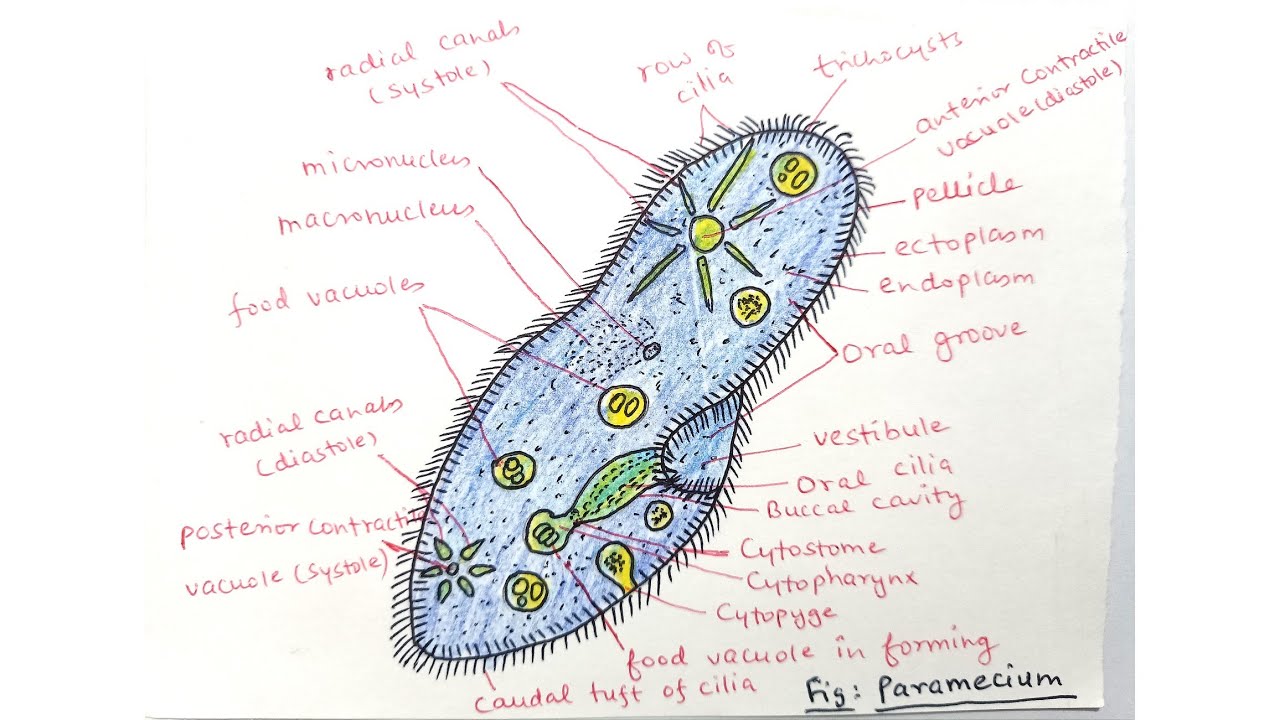 radial canals
(systole)
row of
cilia
trichocysts
anterior contractile
vacuole (diastole)
micronucleus
macronucleus
pellicle
ectoplasm
endoplasm
food vacuoles
oral groove
radial canals
(diastole)
vestibule
oral cilia
Buccal cavity
posterior contractile
vacuole (systole)
Cytostome
Cytopharynx
Cytopyge
food vacuole in forming
caudal tuft of cilia
Fig: Paramecium